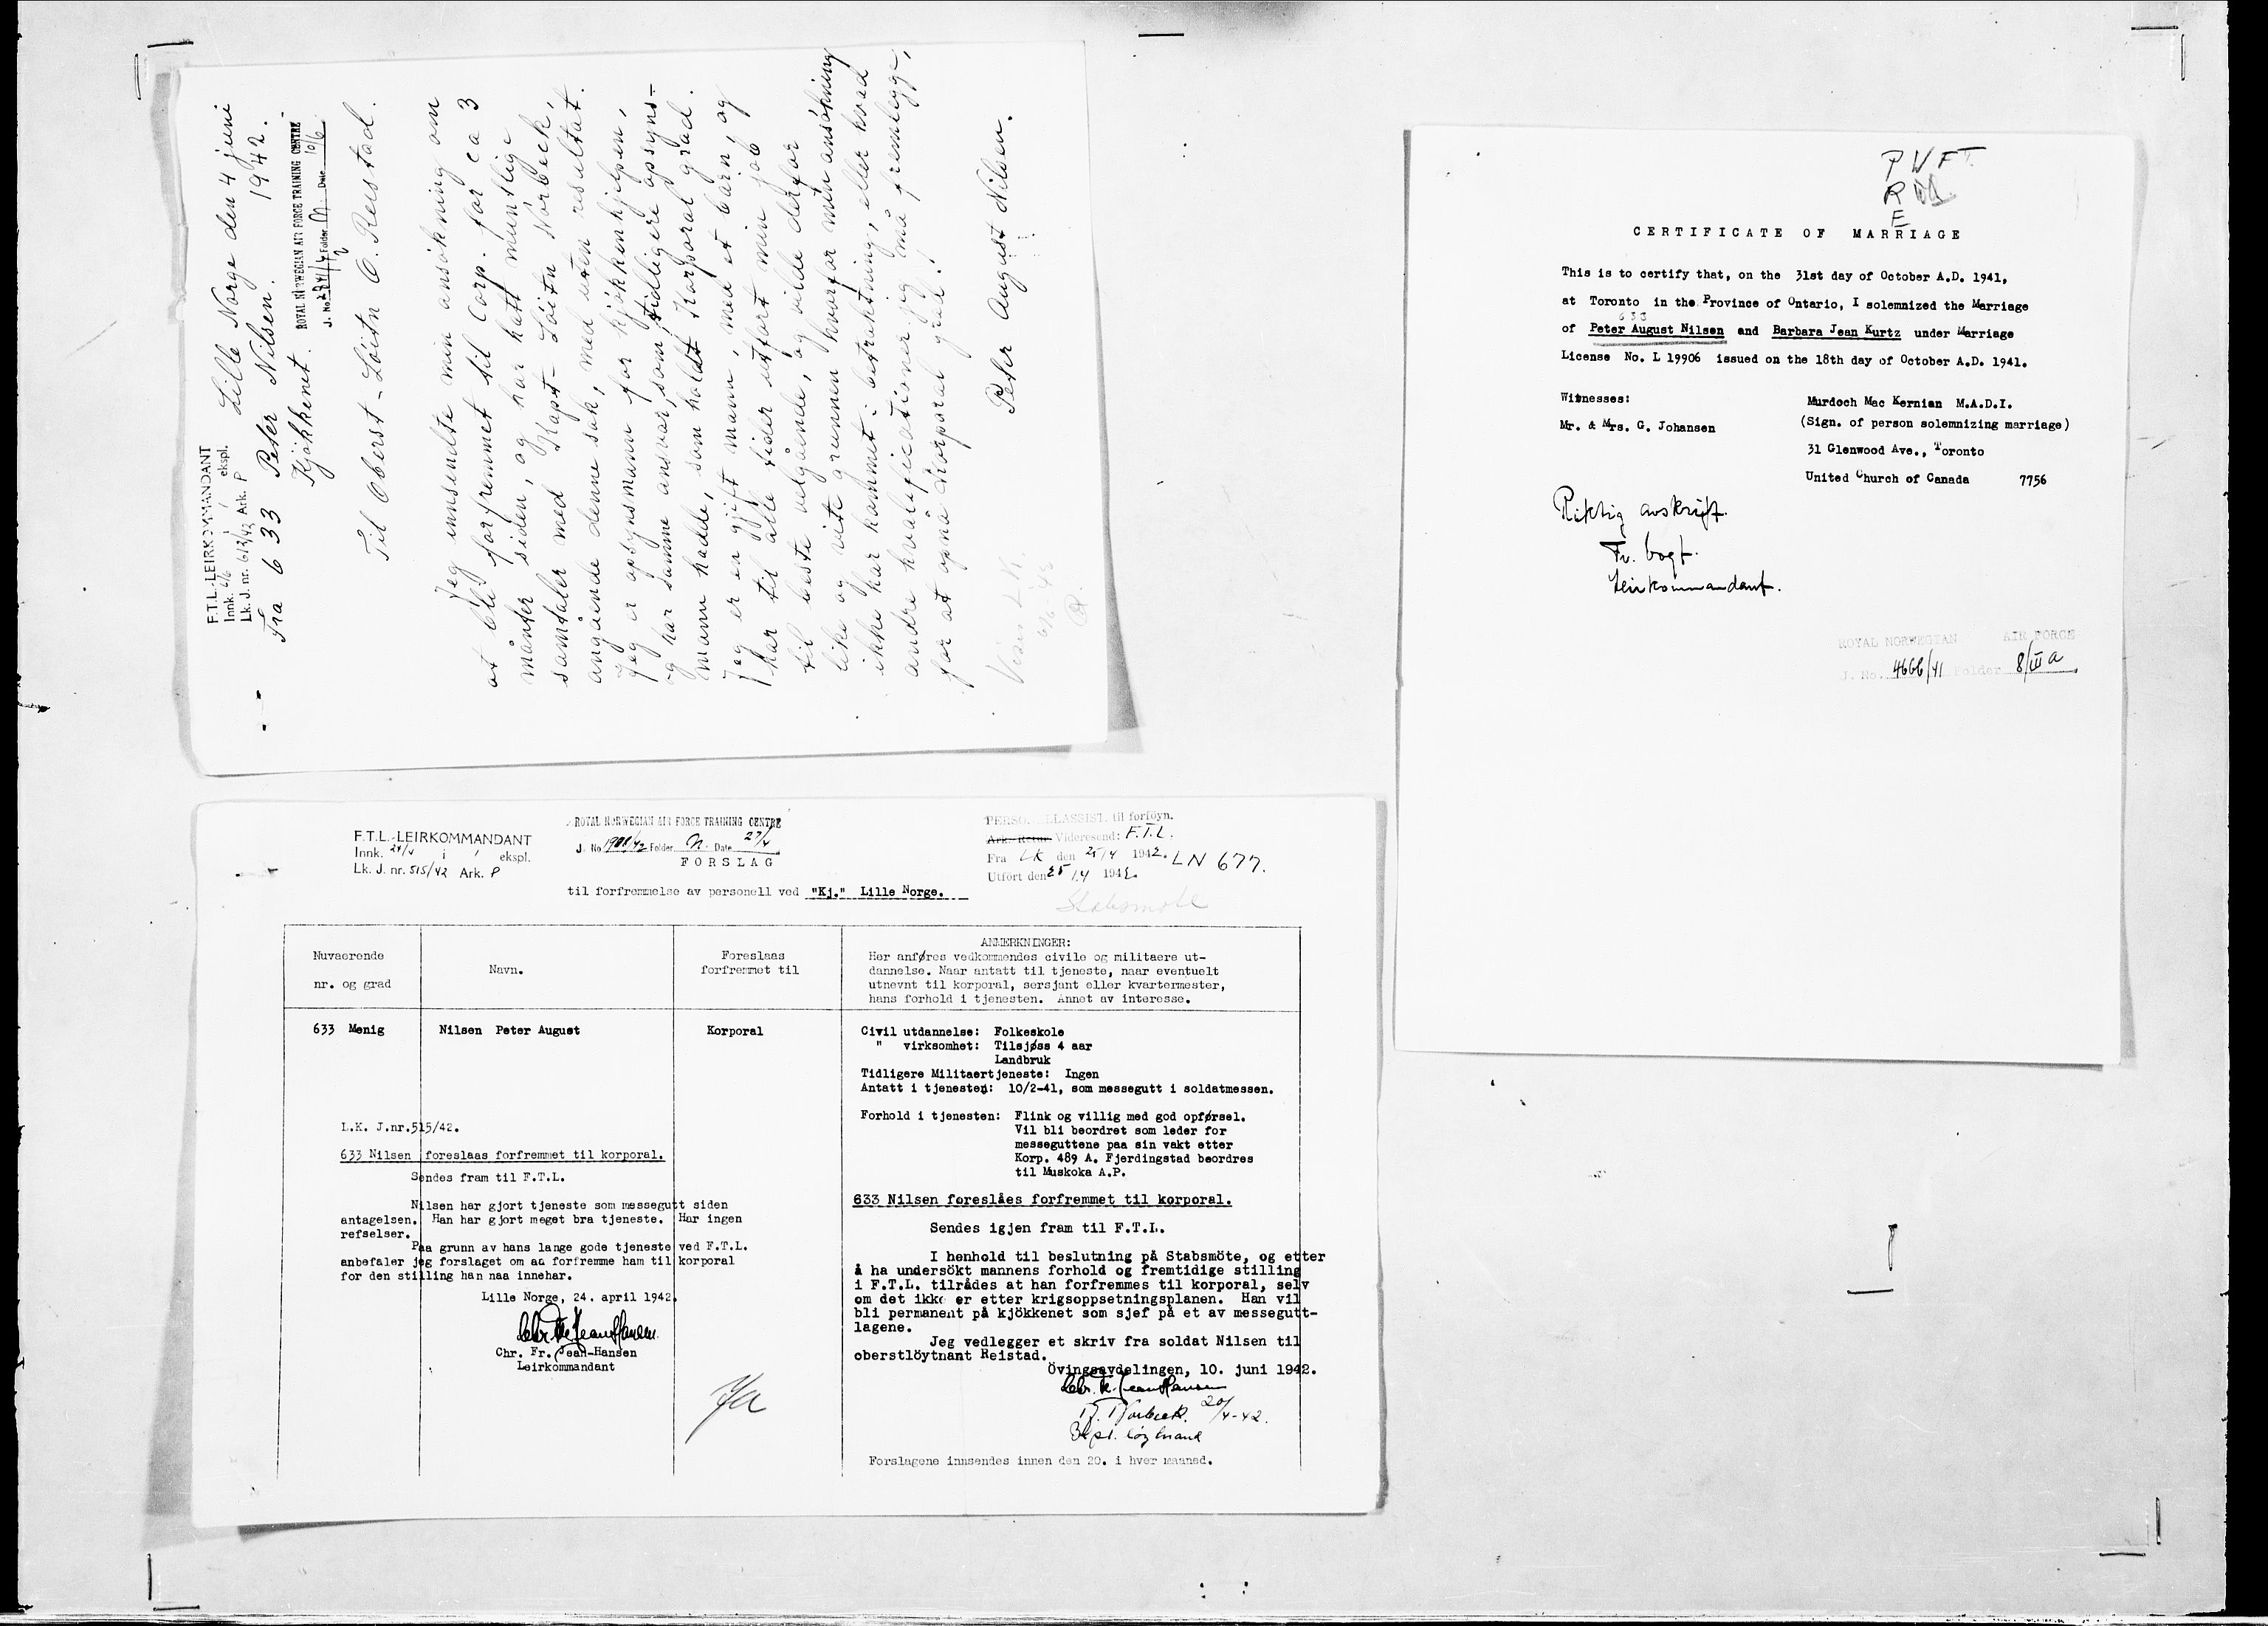 F.T.L.-LEIRKOMMANDANT
Innk. 6/6 i 1 ekspl.
Lk. J. nr. 613/42 Ark. P
Lille Norge den 4 juni
1942.
Fra 633 Peter Nilsen.
Kjökkenet.
ROYAL NORWEGIAN AIR FORCE TRAINING CENTRE
J. No Folder N. Date 10/6
Til Oberst-Löitn O. Reistad.
Jeg innsendte min ansökning om
at bli forfremmet til Corp. for ca 3
månter siden, og har hatt muntlige
samtaler med Kapt-Löitn Norbeck,
angående denne sak, med uten resultat.
Jeg er opsynsmann for kjökkenhjelpen,
og har samme ansvar, som tidligere opsyns-
mann hadde, som holdt Korporal grad.
Jeg er en gjift mann, med et barn, og
har til alle tider utfört min job
til beste velgående, og vilde derfor
like og vite grunnen hvorfor min ansökning
ikke har kommet i betraktning, eller hvad
andre kvalificationer jeg må fremlegge,
for at opnå Korporal grad.!
Peter August Nilsen.
6/6 42
P V F T.
R
E
CERTIFICATE OF MARRIAGE
This is to certify that, on the 31st day of October A.D. 1941,
at Toronto in the Province of Ontario, I solemnized the Marriage
633
of Peter August Nilsen and Barbara Jean Kurtz under Marriage
License No. L 19906 issued on the 18th day of October A.D. 1941.
Witnesses:
Mr. & Mrs. G. Johansen
Murdoch Mac Kernian M.A.D.I.
(Sign. of person solemnizing marriage)
31 Glenwood Ave., Toronto
United Church of Canada 7756
Riktig avskrift.
Fr. Vogt.
Leirkommandant.
ROYAL NORWEGIAN AIR FORCE
J. No. 4666/41 Folder 8/III a
F.T.L.-LEIRKOMMANDANT
Innk. 24/4 i 1 ekspl.
Lk. J. nr. 515/42 Ark. P
ROYAL NORWEGIAN AIR FORCE TRAINING CENTRE
J. No 1908/42 Folder N. Date 27/4
FORSLAG
til forfremmelse av personell ved "Kj." Lille Norge.
PERSONELLASSIST. til forföyn.
Ark. Retur Videresend: F.T.L.
Fra LK den 25/4 1942. LN 677.
Utfört den 25/4 1942.
Stabsmöte
Nuvaerende
nr. og grad
Navn.
Foreslaas
forfremmet til
ANMERKNINGER:
Her anføres vedkommendes civile og militaere ut-
dannelse. Naar antatt til tjeneste, naar eventuelt
utnevnt til korporal, sersjant eller kvartermester,
hans forhold i tjenesten. Annet av interesse.
633 Menig
Nilsen Peter August
Korporal
Civil utdannelse: Folkeskole
" virksomhet: Tilsjøss 4 aar
Landbruk
Tidligere Militaertjeneste: Ingen
Antatt i tjenesten: 10/2-41, som messegutt i soldatmessen.
Forhold i tjenesten: Flink og villig med god opførsel.
Vil bli beordret som leder for
messeguttene paa sin vakt etter
Korp. 489 A. Fjerdingstad beordres
til Muskoka A.P.
L.K. J.nr.515/42.
633 Nilsen foreslaas forfremmet til korporal.
Sendes fram til F.T.L.
Nilsen har gjort tjeneste som messegutt siden
antagelsen. Han har gjort meget bra tjeneste. Har ingen
refselser.
Paa grunn av hans lange gode tjeneste ved F.T.L.
anbefaler jeg forslaget om aa forfremme ham til korporal
for den stilling han naa innehar.
Lille Norge, 24. april 1942.
Chr. Fr. Jean-Hansen
Chr. Fr. Jean-Hansen
Leirkommandant
Ja
633 Nilsen foreslåes forfremmet til korporal.
Sendes igjen fram til F.T.L.
I henhold til beslutning på Stabsmöte, og etter
å ha undersökt mannens forhold og fremtidige stilling
i F.T.L. tilrådes at han forfremmes til korporal, selv
om det ikke er etter krigsoppsetningsplanen. Han vil
bli permanent på kjökkenet som sjef på et av messegutt-
lagene.
Jeg vedlegger et skriv fra soldat Nilsen til
oberstlöytnant Reistad.
Övingsavdelingen, 10. juni 1942.
Chr. Fr. Jean Hansen
Norbeck. 20/4-42.
Kapt. löytnant
Forslagene innsendes innen den 20. i hver maaned.